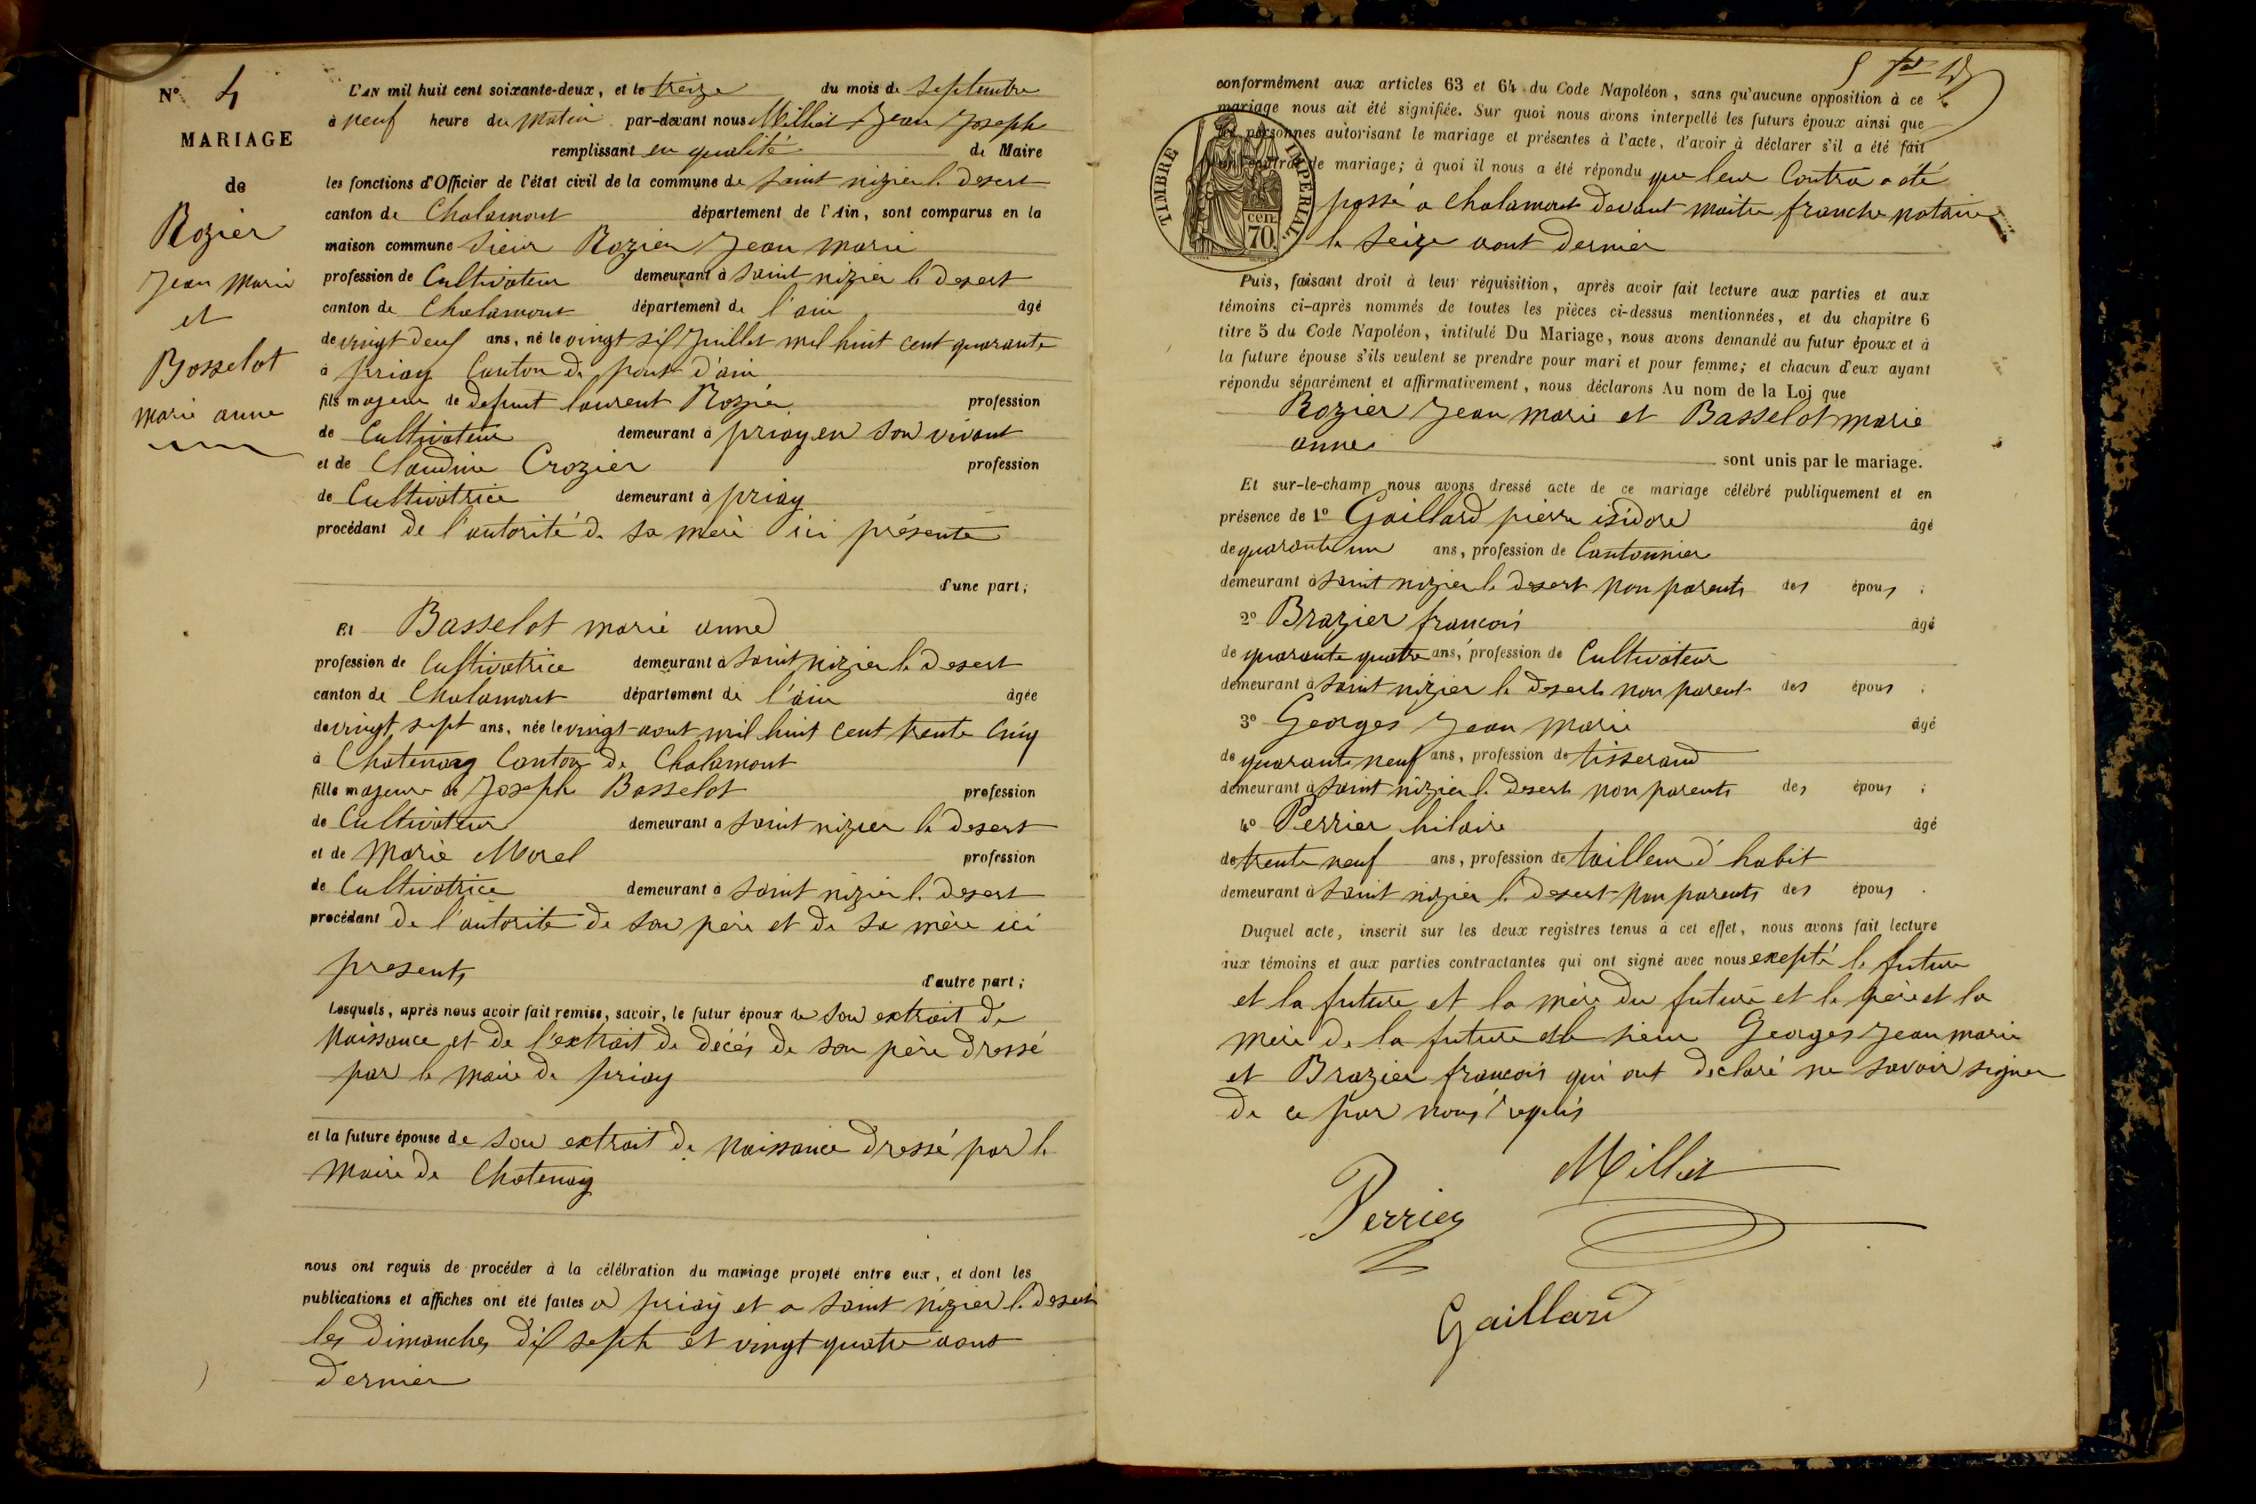 N° 4
MARIAGE
de
Rozier
Jean Marie
et
Basselot
marie anne
L'AN mil huit cent soixante-deux, et le treize du mois de septembre
à neuf heure du matin par-devant nous Millet Jean Joseph
remplissant en qualité de Maire
les fonctions d'Officier de l'état civil de la commune de saint nizier le desert
canton de Chalamont département de l'Ain, sont comparus en la
maison commune sieur Rozier Jean marie
profession de Cultivateur demeurant à saint nizier le desert
canton de Chalamont département de l'ain âgé
de vingt deux ans, né le vingt six Juillet mil huit cent quarante
à priay Canton de pont d'ain
fils majeur de defunt laurent Rozier profession
de Cultivateur demeurant à priay en son vivant
et de Claudine Crozier profession
de Cultivatrice demeurant à priay
procédant de l'autorité de sa mere ici présente
d'une part;
Et Basselot marie anne
profession de Cultivatrice demeurant à saint nizier le desert
canton de Chalamont département de l'ain âgée
de vingt sept ans, née le vingt aout mil huit cent trente cinq
à Chatenay Canton de Chalamont
fille majeure de Joseph Basselot profession
de Cultivateur demeurant à saint nizier le desert
et de Marie Morel profession
de Cultivatrice demeurant à saint nizier le desert
procédant de l'autorité de son père et de sa mère ici
presents
d'autre part;
Lesquels, après nous avoir fait remise, savoir, le futur époux de son extrait de
naissance et de l'extrait de décès de son père dressé
par le maire de priay
et la future épouse de son extrait de naissance dressé par le
maire de Chatenay
nous ont requis de procéder à la célébration du mariage projeté entre eux, et dont les
publications et affiches ont été faites a priay et a saint nizier le desert
les dimanches dix sept et vingt quatre aout
dernier
conformément aux articles 63 et 64 du Code Napoléon, sans qu'aucune opposition à ce
mariage nous ait été signifiée. Sur quoi nous avons interpellé les futurs époux ainsi que
les personnes autorisant le mariage et présentes à l'acte, d'avoir à déclarer s'il a été fait
un contrat de mariage; à quoi il nous a été répondu que leur Contra a été
passé a chalamont devant maitre franche notaire
le seize aout dernier
TIMBRE IMPERIAL
70 cen.
Puis, faisant droit à leur réquisition, après avoir fait lecture aux parties et aux
témoins ci-après nommés de toutes les pièces ci-dessus mentionnées, et du chapitre 6
titre 5 du Code Napoléon, intitulé Du Mariage, nous avons demandé au futur époux et à
la future épouse s'ils veulent se prendre pour mari et pour femme; et chacun d'eux ayant
répondu séparément et affirmativement, nous déclarons Au nom de la Loi que
Rozier Jean marie et Basselot marie
anne
sont unis par le mariage.
Et sur-le-champ nous avons dressé acte de ce mariage célébré publiquement et en
présence de 1° Gaillard pierre isidore âgé
de quarante un ans, profession de Cantonnier
demeurant à saint nizier le desert non parents des époux ;
2° Brazier francois âgé
de quarante quatre ans, profession de Cultivateur
demeurant à saint nizier le desert non parent des époux ;
3° Georges Jean Marie âgé
de quarante neuf ans, profession de tisserand
demeurant à saint nizier le desert non parents des époux ;
4° Perrier hilaire âgé
de trente neuf ans, profession de tailleur d'habit
demeurant à saint nizier le desert non parents des époux .
Duquel acte, inscrit sur les deux registres tenus à cet effet, nous avons fait lecture
aux témoins et aux parties contractantes qui ont signé avec nous exepté le future
et la future et la mère du future et le père et la
mere de la future et le sieur Georges Jean marie
et Brazier francois qui ont declaré ne savoir signer
de ce par nous requis
Millet
Perrier
Gaillard